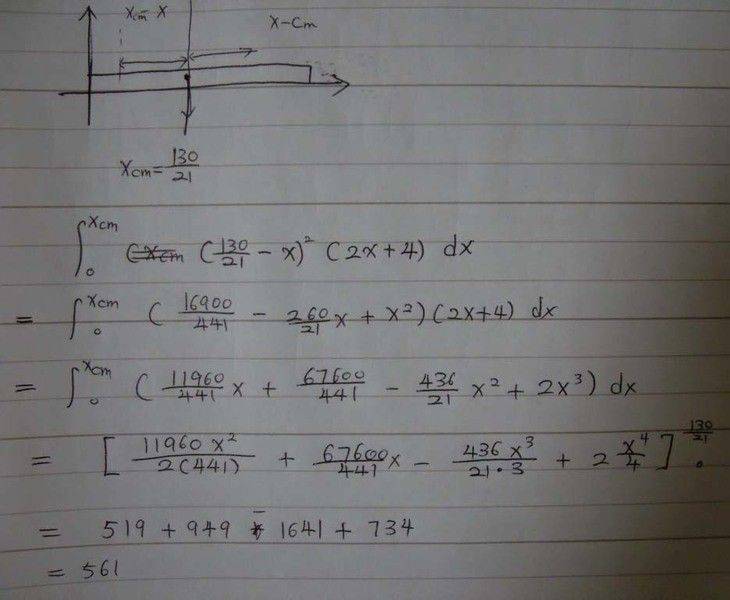 Xcm - X
X-Cm
Xcm = 130/21
∫₀^Xcm (130/21 - x)² (2x+4) dx
= ∫₀^Xcm (16900/441 - 260/21 x + x²)(2x+4) dx
= ∫₀^Xcm (11960/441 x + 67600/441 - 436/21 x² + 2x³) dx
= [11960x²/2(441) + 67600/441 x - 436x³/21·3 + 2 x⁴/4]₀^130/21
= 519 + 949 - 1641 + 734
= 561